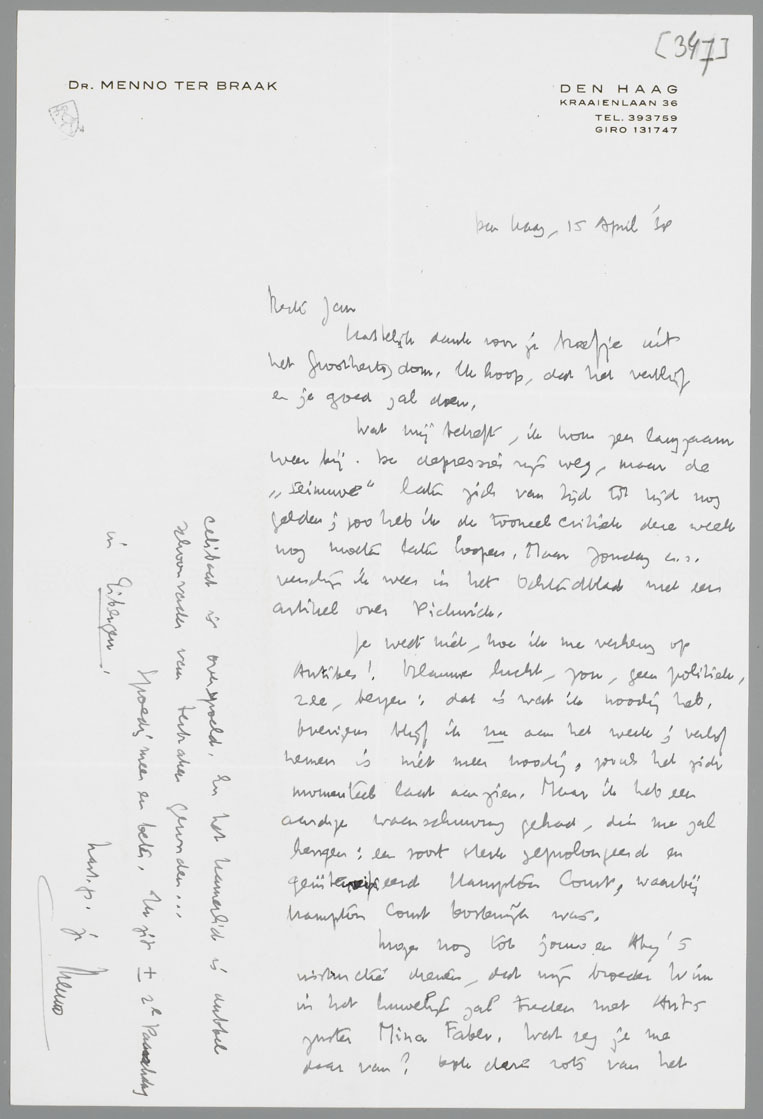 [347]
DR. MENNO TER BRAAK
DEN HAAG
KRAAIENLAAN 36
TEL. 393759
GIRO 131747
Den Haag, 15 April '38
Beste Jan
Hartelijk dank voor je briefje uit
het Groothertogdom. Ik hoop, dat het verblijf
er je goed zal doen.
Wat mij betreft, ik kom zeer langzaam
weer bij. De depressies zijn weg, maar de
„Seinuwe" laten zich van tijd tot tijd nog
gelden; zoo heb ik de tooneelcritiek deze week
nog moeten laten loopen. Maar Zondag a.s.
verschijn ik weer in het Ochtendblad met een
artikel over Pickwick.
Je weet niet, hoe ik me verheug op
Antibes! Blauwe lucht, zon, geen politiek,
zee, bergen: dat is wat ik noodig heb.
Overigens blijf ik nu aan het werk; verlof
nemen is niet meer noodig, zooals het zich
momenteel laat aanzien. Maar ik heb een
aardige waarschuwing gehad, die me zal
heugen: een soort sterk geprolongeerd en
Hampton Court, waarbij
Hampton Court was.
nog tot jouw en Any's
dienen, dat mijn broeder Wim
in het huwelijk zal treden met Ant's
zuster Mina Faber. Wat zeg je me
daar van? Ook deze rots van het
celibaat is overspoeld. En het Kamerlid is dubbel
schoonvader van ter Braken geworden...
Spoedig meer en beter. Ik zit ± 2e Paaschdag
in Eibergen!
hart. gr. je Menno